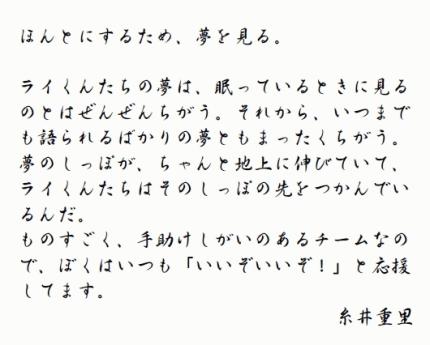 ほんとにするため、夢を見る。
ライくんたちの夢は、眠っているときに見る
のとはぜんぜんちがう。それから、いつまで
も語られるばかりの夢ともまったくちがう。
夢のしっぽが、ちゃんと地上に伸びていて、
ライくんたちはそのしっぽの先をつかんでい
るんだ。
ものすごく、手助けしがいのあるチームなの
で、ぼくはいつも「いいぞいいぞ！」と応援
してます。
糸井重里